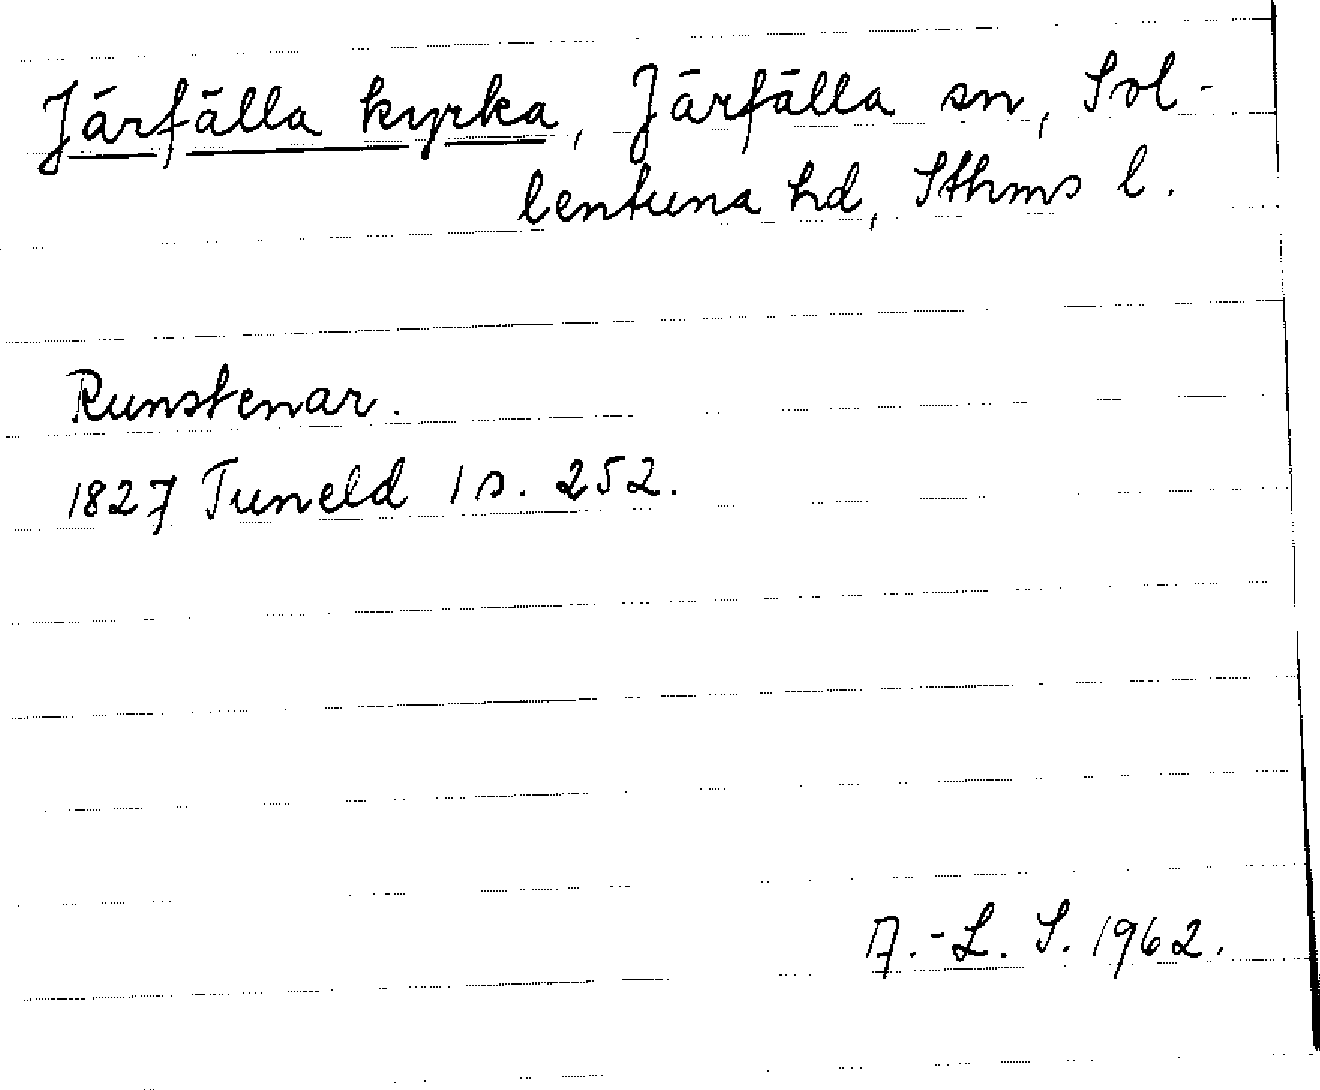 Järfälla kyrka, Järfälla sn, Sol-
lentuna hd, Sthms l.
Runstenar.
1827 Tuneld 1 s. 252.
A.-L. S. 1962.